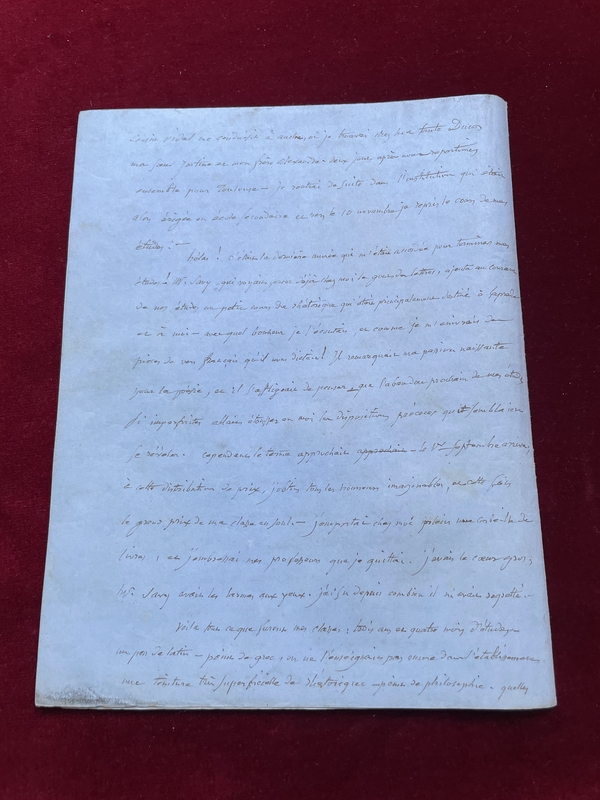 cousin Vidal me conduisit à Auch, où je trouvai chez ma tante Ducos
ma sœur Justine et mon frère Alexandre. deux jours après nous repartîmes
ensemble pour Toulouse — je rentrai de suite dans l'institution qui était
alors érigée en école secondaire et vers le 10 novembre je repris le cours de mes
études. —
hélas! c'était la dernière année qui m'était accordée pour terminer mes
études! M. Savy, qui
de nos études un petit cours de rhétorique qui était principalement destiné à
et à moi — avec quel bonheur je l'écoutais, et comme je m'enivrais de
pièces de vers français qu'il nous dictait! Il remarquait ma passion naissante
pour la poésie, et il s'affligeait de penser que l'abandon prochain de mes études
si imparfaites allait étouffer en moi les dispositions précoces qui semblaient
se révéler. cependant le terme approchait — le 1er Septembre arriva,
à cette distribution de prix, j'obtins tous les honneurs imaginables, et cette fois
le grand prix de ma classe en sus — j'emportai chez moi
livres; et j'embrassai mes professeurs que je quittai. j'avais le cœur gros;
Mr. Savy avait les larmes aux yeux. j'ai su depuis combien il m'avait regretté. —
Voilà tout ce que furent mes classes; trois ans et quatre mois d'études
un peu de latin — point de grec; on ne l'enseignait pas encore dans l'établissement,
une teinture très superficielle de rhétorique — point de philosophie. quelles